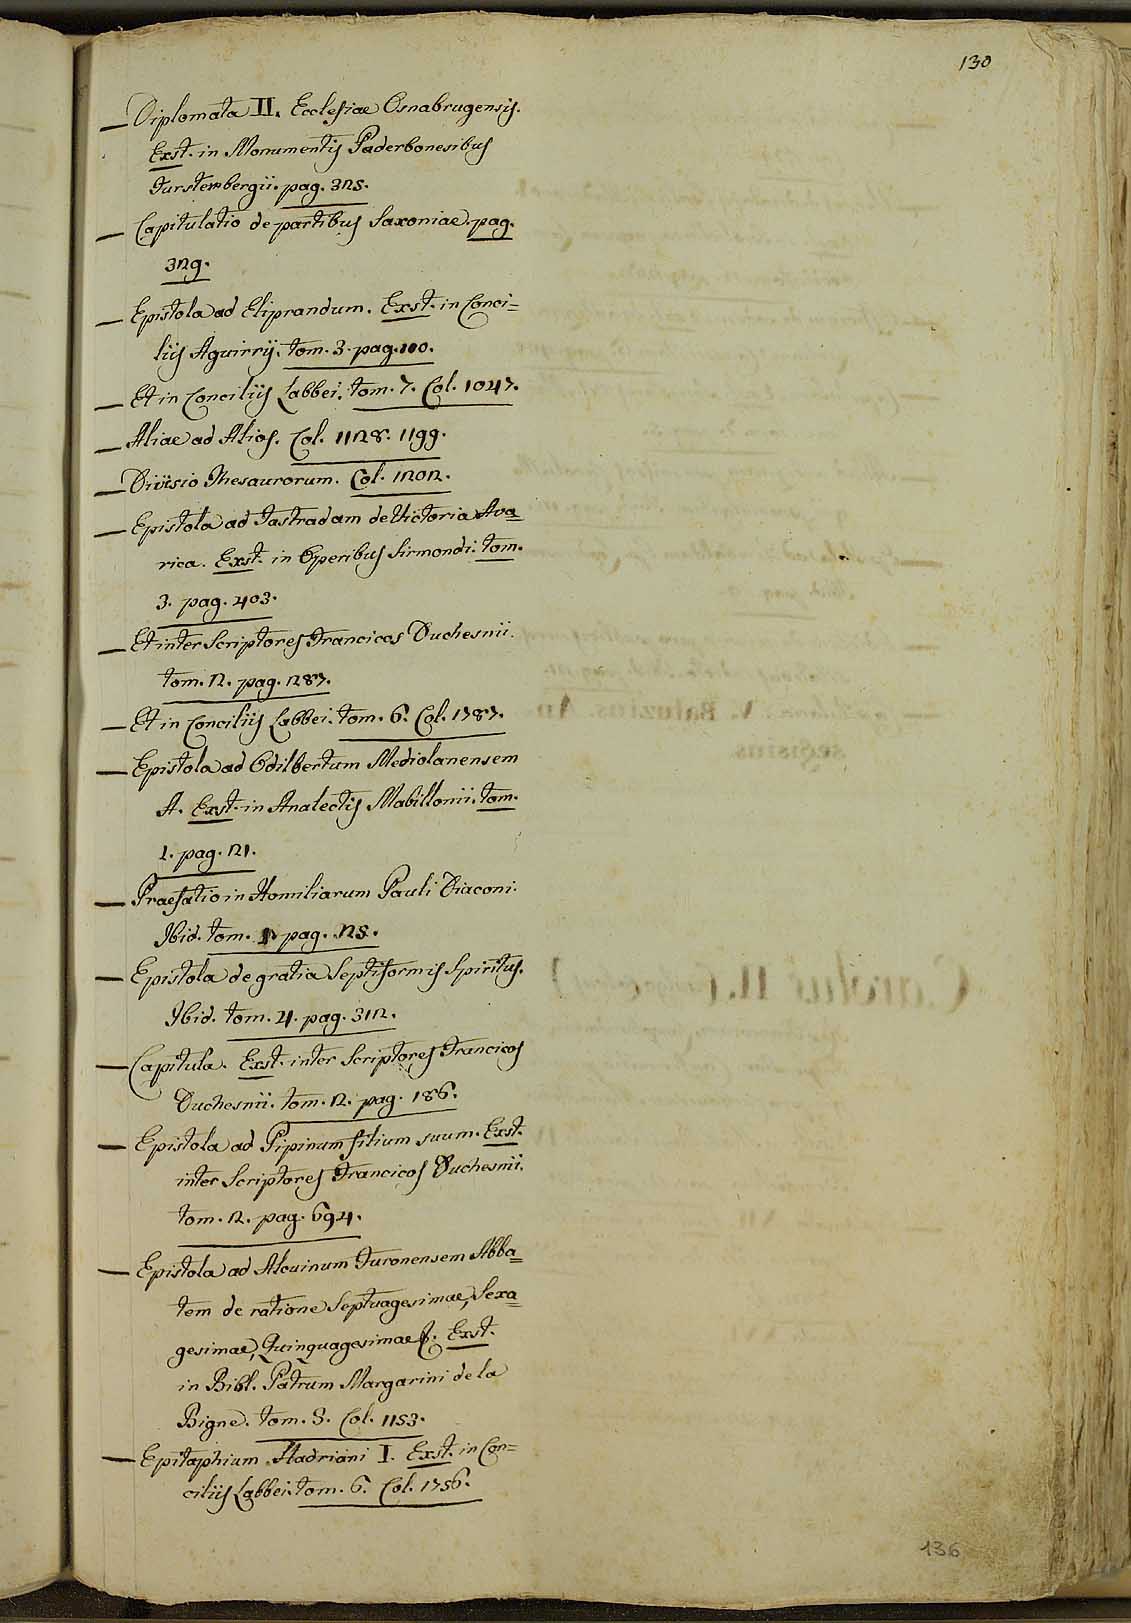 130
— Diplomata II. Ecclesiae Osnabrugensis.
Exst. in Monumentis Paderbonesibus
Furstembergii. pag. 325.
— Capitulatio de partibus Saxoniae. pag.
329.
— Epistola ad Eliprandum. Exst. in Conci=
liis Aguirrij. tom. 3. pag. 100.
— Et in Conciliis Labbei. tom. 7. Col. 1047.
— Aliae ad Alios. Col. 1128. 1199.
— Divisio Thesaurorum. Col. 1202.
— Epistola ad Fastradam de Victoria Ava=
rica. Exst. in Operibus Sirmondi. tom.
3. pag. 403.
— Et inter Scriptores Francicos Duchesnii.
tom. 2. pag. 287.
— Et in Conciliis Labbei. tom. 6. Col. 1787.
— Epistola ad Odilbertum Mediolanensem
A. Exst. in Analectis Mabillonii. tom.
1. pag. 21.
— Praefatio in Homiliarum Pauli Diaconi.
Ibid. tom. 1. pag. 25.
— Epistola de gratia Septiformis Spiritus.
Ibid. tom. 4. pag. 312.
— Capitula. Exst. inter Scriptores Francicos
Duchesnii. tom. 2. pag. 186.
— Epistola ad Pipinum filium suum. Exst.
inter Scriptores Francicos Duchesnii.
tom. 2. pag. 694.
— Epistola ad Alcuinum Turonensem Abba=
tem de ratione Septuagesimae, Sexa=
gesimae, Quinquagesimae &. Exst.
in Bibl. Patrum Margarini de la
Bigne. tom. 3. Col. 1153.
— Epitaphium Hadriani I. Exst. in Con=
ciliis Labbei. tom. 6. Col. 1756.
136